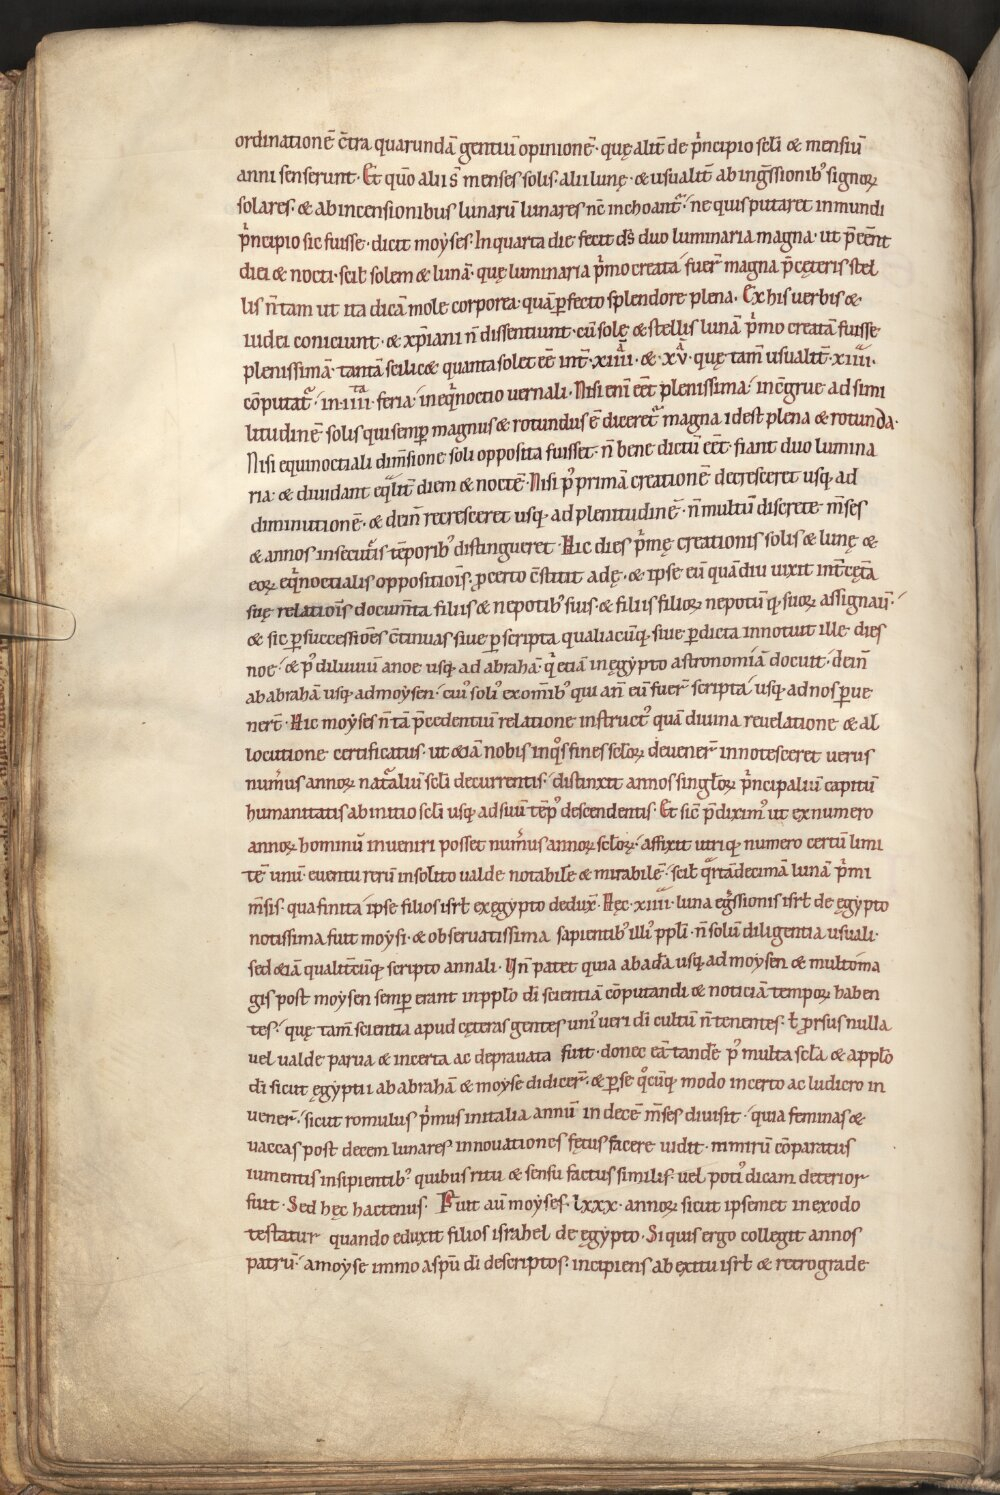 ordinationē c̄tra quarundā gentiū opinionē· quę alit̄ de p̍ncipio sc̄li & mensiū
anni senserunt· Et qm̄o alii s̄ menses solis· alii lunę· & usualit̄ ab ing̍ssionib; signoꝝ
solares· & ab incensionibus lunarū lunares nc̄ inchoant᷑· ne quis putaret in mundi
p̍ncipio sic fuisse· dicit moẏses· In quarta die fecit ds̄ duo luminaria magna· ut p̄eēnt
diei & nocti· scił solem & lunā· quę luminaria p̍mo creata fuer̄ magna p̄ cęteris stel
lis n̄ tam ut ita dicā mole corporea· quā ꝑfecto splendore plena· Ex his uerbis &
iudei coniciunt· & xp̄iani n̄ dissentiunt· cū sole & stellis lunā p̍mo creatā fuisse
plenissimā· tantā scilic& quanta solet eē int̄· xiiii· & xv· quę tam̄ usualit̄· xiiii·
cōputat᷑· in· iiii· feria· in eq̍noctio uernali· Nisi eni eēt plenissima· incōgrue ad simi
litudinē solis qui semꝑ magnus & rotundus ē diceret᷑ magna idest plena & rotunda·
Nisi equinoctiali dim̄sione soli opposita fuisset· n̄ bene dictū eēt· fiant duo lumina
ria· & diuidant eq̍lit̄ diem & noctē· Nisi p᷒ primā creationē decresceret usq; ad
diminutionē· & dein̄ recresceret usq; ad plenitudinē· n̄ multū discrete m̄ses
& annos in secutis tēporib; distingueret· Hic dies p̍mę creationis solis & lunę &
eoꝝ eq̍noctialis oppositiois̄· ꝓ certo c̄stitit adę· & ipse eū quādiu uixit int̄ cęt̄a
suę relatiois̄ documt̄a filiis & nepotib; suis· & filiis filioꝝ nepotūq; suoꝝ assignau̅·
& sic ꝑ successiōes c̄tinuas siue ꝑ scripta qualiacūq; siue ꝑ dicta innotuit ille dies
noe· & p᷒ diluuiū a noe usq; ad abrahā· q̍ etiā in ęgẏpto astronomiā docuit· dein̄
ab abrahā usq; ad moysen· cui᷒ soli᷒ ex omīb; qui an̄ eū fuer̄ scripta usq; ad nos ꝑue
ner̄t· Hic moẏses n̄ tā p̄cedentiū relatione instruct᷒ quā diuina reuelatione & al
locutione certificatus· ut &iā nobis in q᷒s fines sc̄loꝝ deuener̄ innotesceret uerus
num̍us annoꝝ natāliū sc̄li decurrentis· distinxit annos singłoꝝ p̍ncipaliū capitū
humanitatis ab initio sc̄li usq; ad suū tēp᷒ descendentis· Et sic̄ p̄dixim᷒ ut ex numero
annoꝝ hominū inueniri posset num̍us annoꝝ sc̄loꝝ· affixit utriq; numero certū limi
tē unū· euentu rerū insolito ualde notabilē & mirabilē· scił q̍rtādecimā lunā p̍mi
m̄sis· qua finita ipse filios isrł ex ęgẏpto dedux̄· Hęc· xiiii· luna eg̍ssionis isrł de ęgẏpto
notissima fuit moẏsi· & obseruatissima sapientib; illi᷒ ppłi· n̄ solū diligentia usuali·
sed &iā qualit̄cūq; scripto annali· Hn̄ patet quia ab adā usq; ad moẏsen & multo ma
gis post moẏsen semꝑ erant in ppło di̅ scientiā cōputandi & noticiā tempoꝝ haben
tes· quę tam̄ scientia apud cęteras gentes uni᷒ ueri di̅ cultū n̄ tenentes· ł prsus nulla
uel ualde parua & incerta ac deprauata fuit· donec eā tandē p᷒ multa sc̄la & a ppło
di̅ sicut ęgẏptii ab abrahā & moẏse didicer̄· & ꝑ se q᷒cūq; modo incerto ac ludicro in
uener̄· sicut romulus p̍mus in italia annū in decē m̄ses diuisit· quia feminas &
uaccas post decem lunares innouationes fętus facere uidit· nimirū cōparatus
iumentis insipientib; quibus ritu & sensu factus similis· uel poti᷒ dicam deterior
fuit· Sed hęc hactenus· Fuit aū moẏses· lxxx· annoꝝ sicut ipsemet in exodo
testatur quando eduxit filios israhel de ęgẏpto· Siquis ergo collegit annos
patrū· a moẏse immo a spū di̅ descriptos· incipiens ab exitu isrł & retrograde